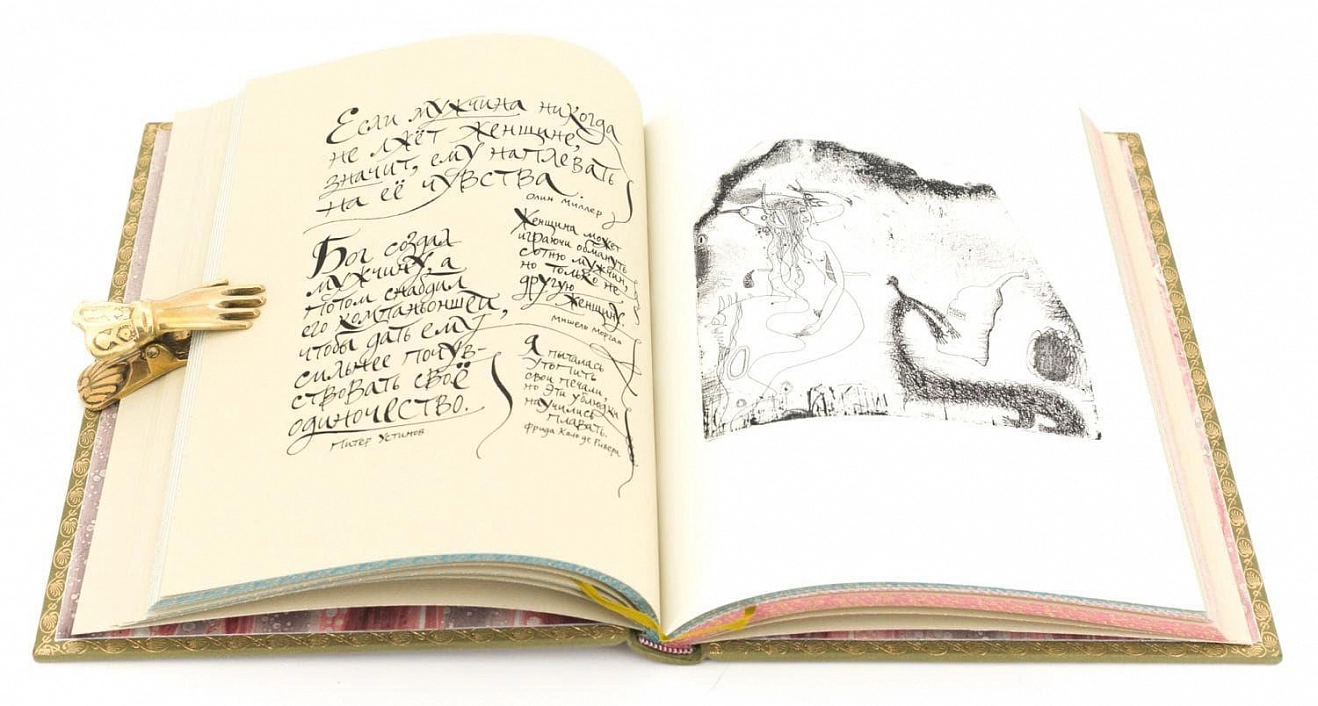 Если мужчина никогда
не лжёт женщине,
значит, ему наплевать
на её чувства.
Олин Миллер
Бог создал
мужчину, а
потом снабдил
его компаньоншей,
чтобы дать ему
сильнее почув-
ствовать своё
одиночество.
Питер Устинов
Женщина может
играючи обмануть
сотню мужчин,
но только не
другую
женщину.
Мишель Морган
Я пыталась
утопить
свои печали,
но эти ублюдки
научились
плавать.
Фрида Кало де Ривера